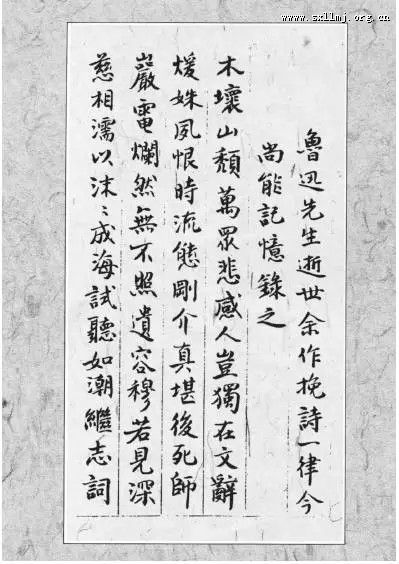 www.sxllmj.org.cn
魯迅先生逝世余作挽詩一律今
尚能記憶錄之
木壞山頹萬眾悲感人豈獨在文辭
煖姝夙恨時流態剛介真堪後死師
巖電爛然無不照遺容穆若見深
慈相濡以沫〻成海試聽如潮繼志詞